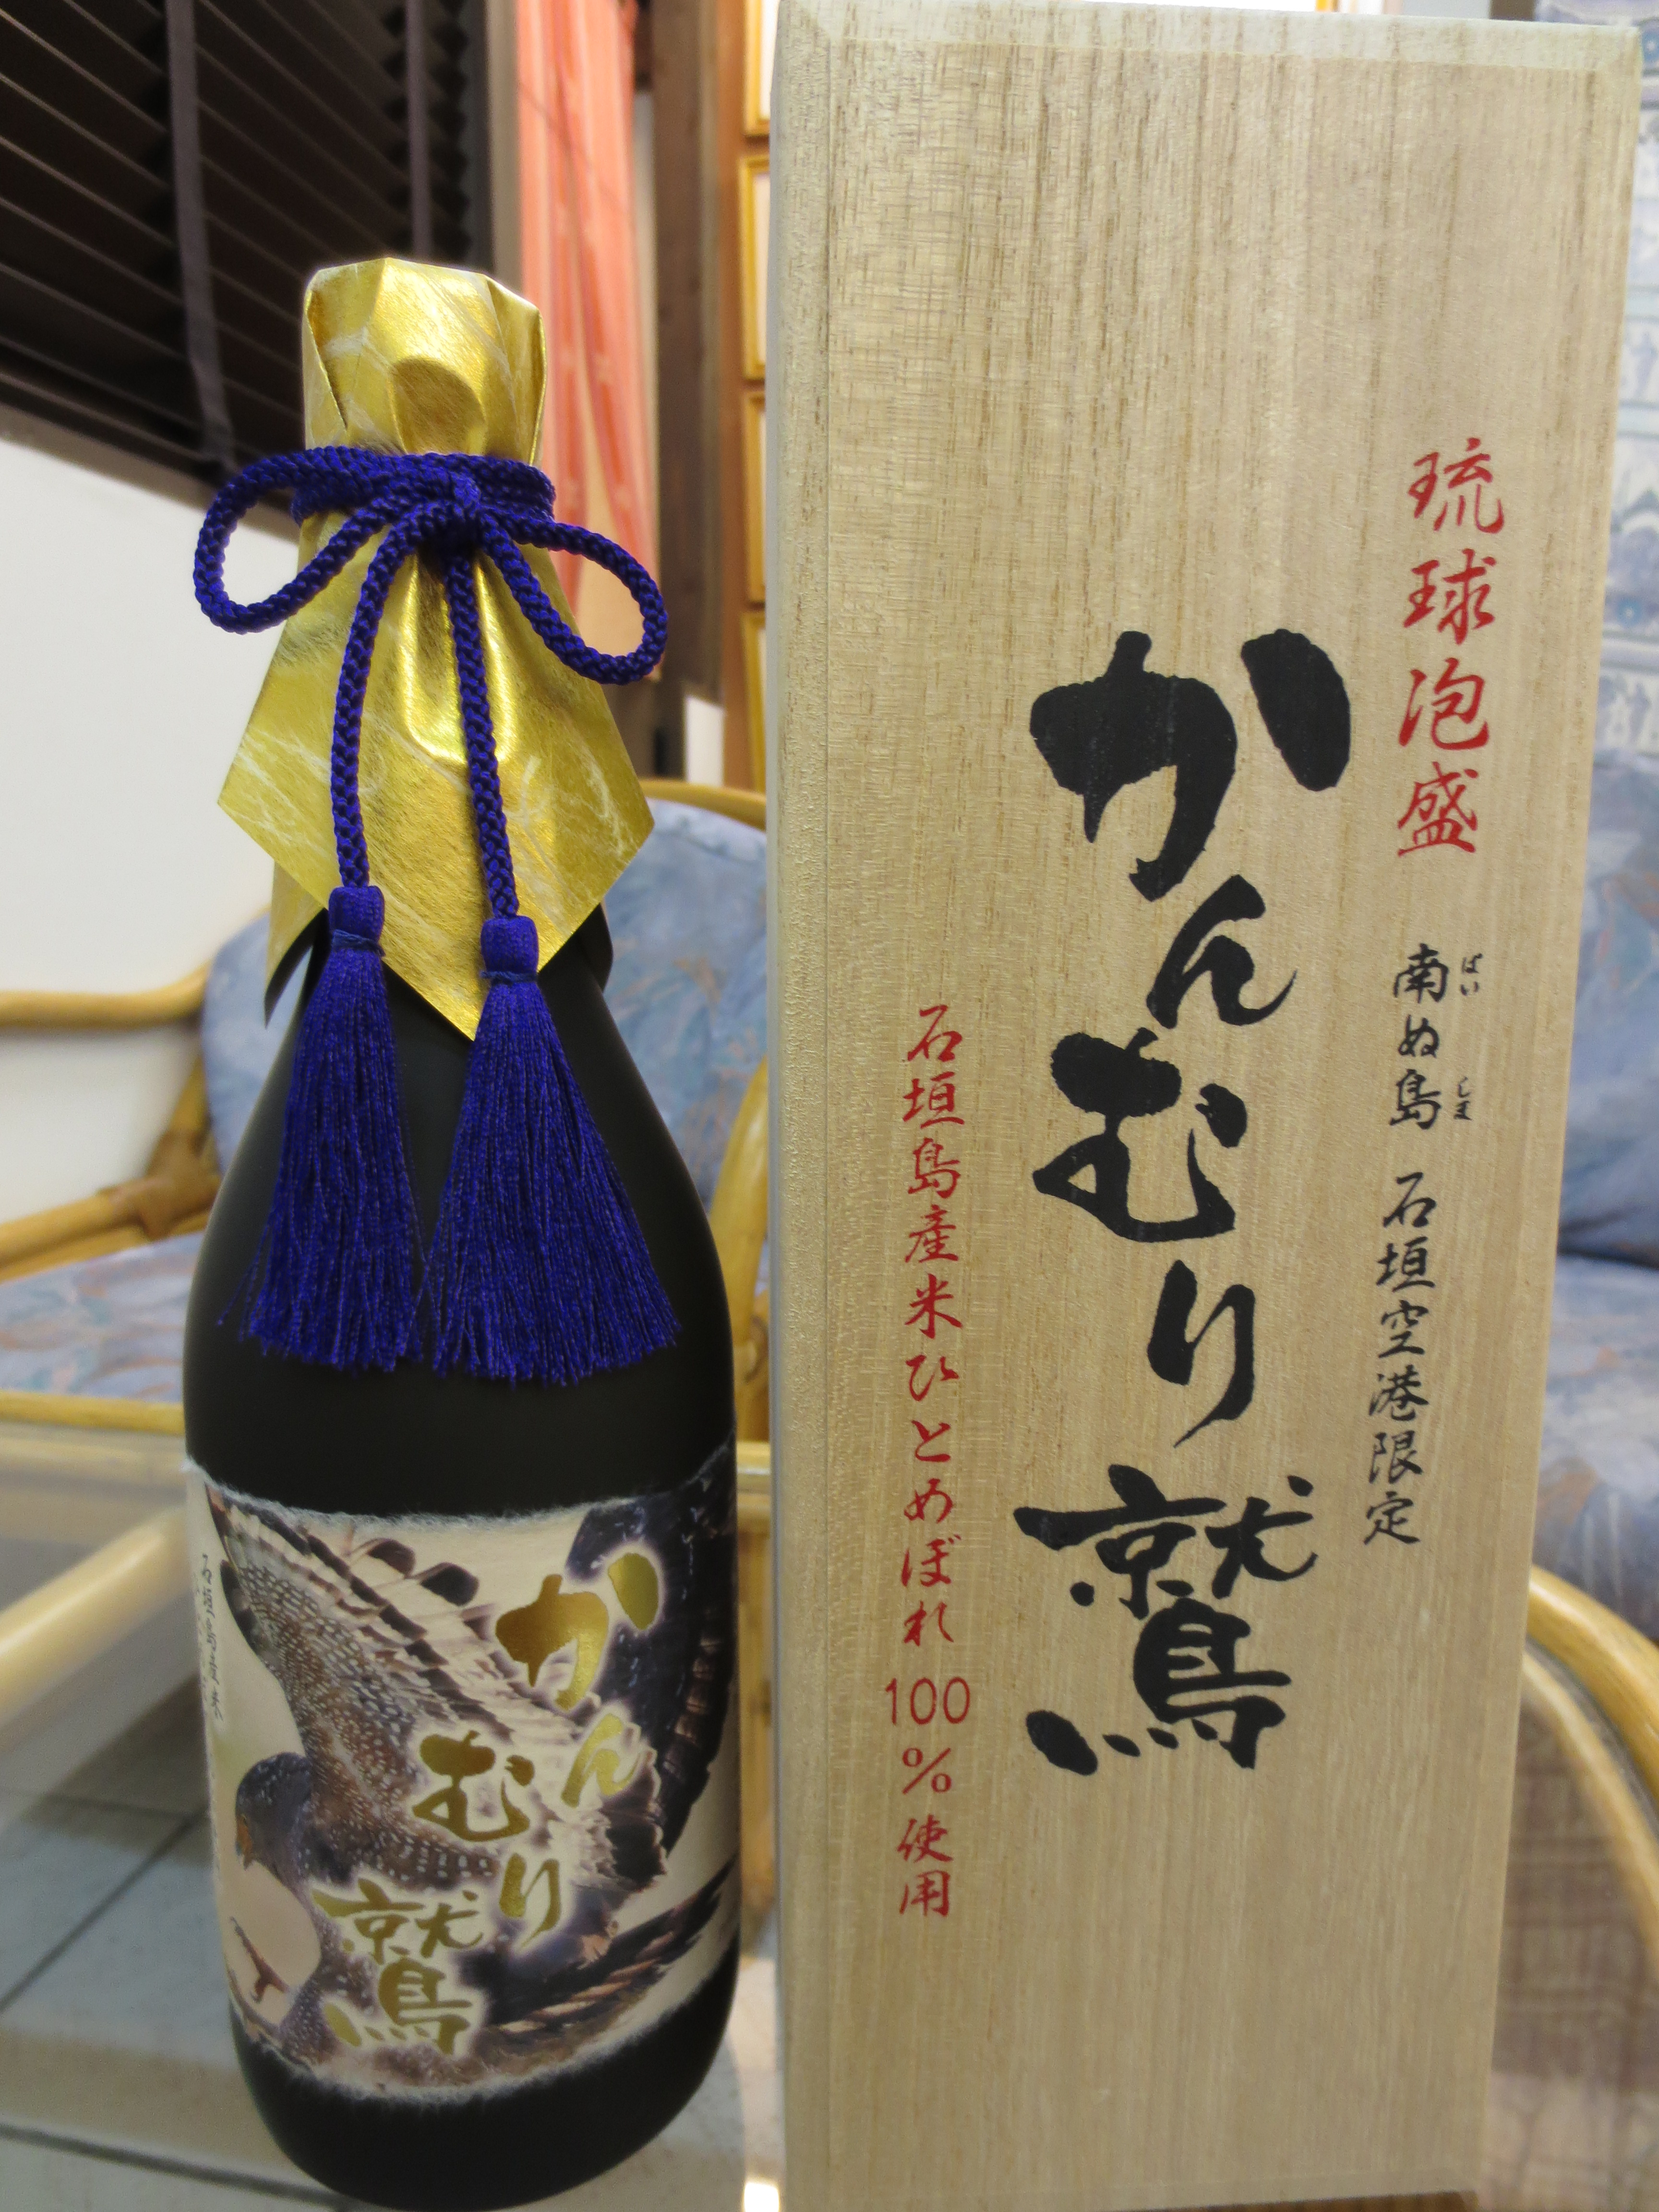 琉球泡盛
南ぬ島 石垣空港限定
ばい しま
かんむり鷲
石垣島産米ひとめぼれ100%使用
かんむり鷲